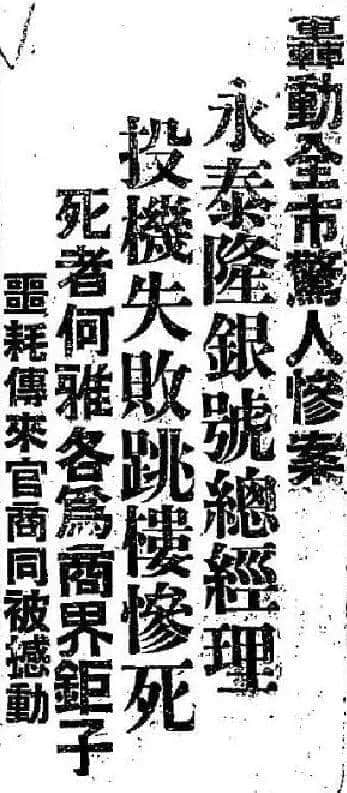 轟動全市驚人慘案
永泰隆銀號總經理
投機失敗跳樓慘死
死者何雅各為商界鉅子
噩耗傳來官商同被撼動